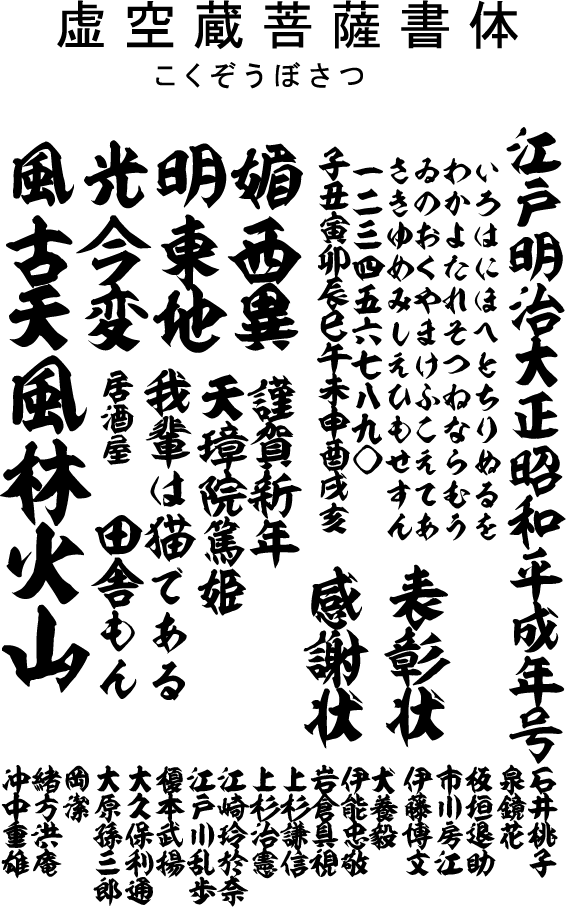 虚空蔵菩薩書体
こくぞうぼさつ
江戸明治大正昭和平成年号
いろはにほへとちりぬるを
わかよたれそつねならむう
ゐのおくやまけふこえてあ
さきゆめみしえひもせすん
一二三四五六七八九〇
子丑寅卯辰巳午未申酉戌亥
表彰状
感謝状
媚西異
明東地
光今変
風古天
謹賀新年
天璋院篤姫
我輩は猫である
居酒屋
田舎もん
風林火山
石井桃子
泉鏡花
板垣退助
市川房江
伊藤博文
犬養毅
伊能忠敬
岩倉具視
上杉謙信
上杉治憲
江崎玲於奈
江戸川乱歩
榎本武揚
大久保利通
大原孫三郎
岡潔
緒方洪庵
沖中重雄